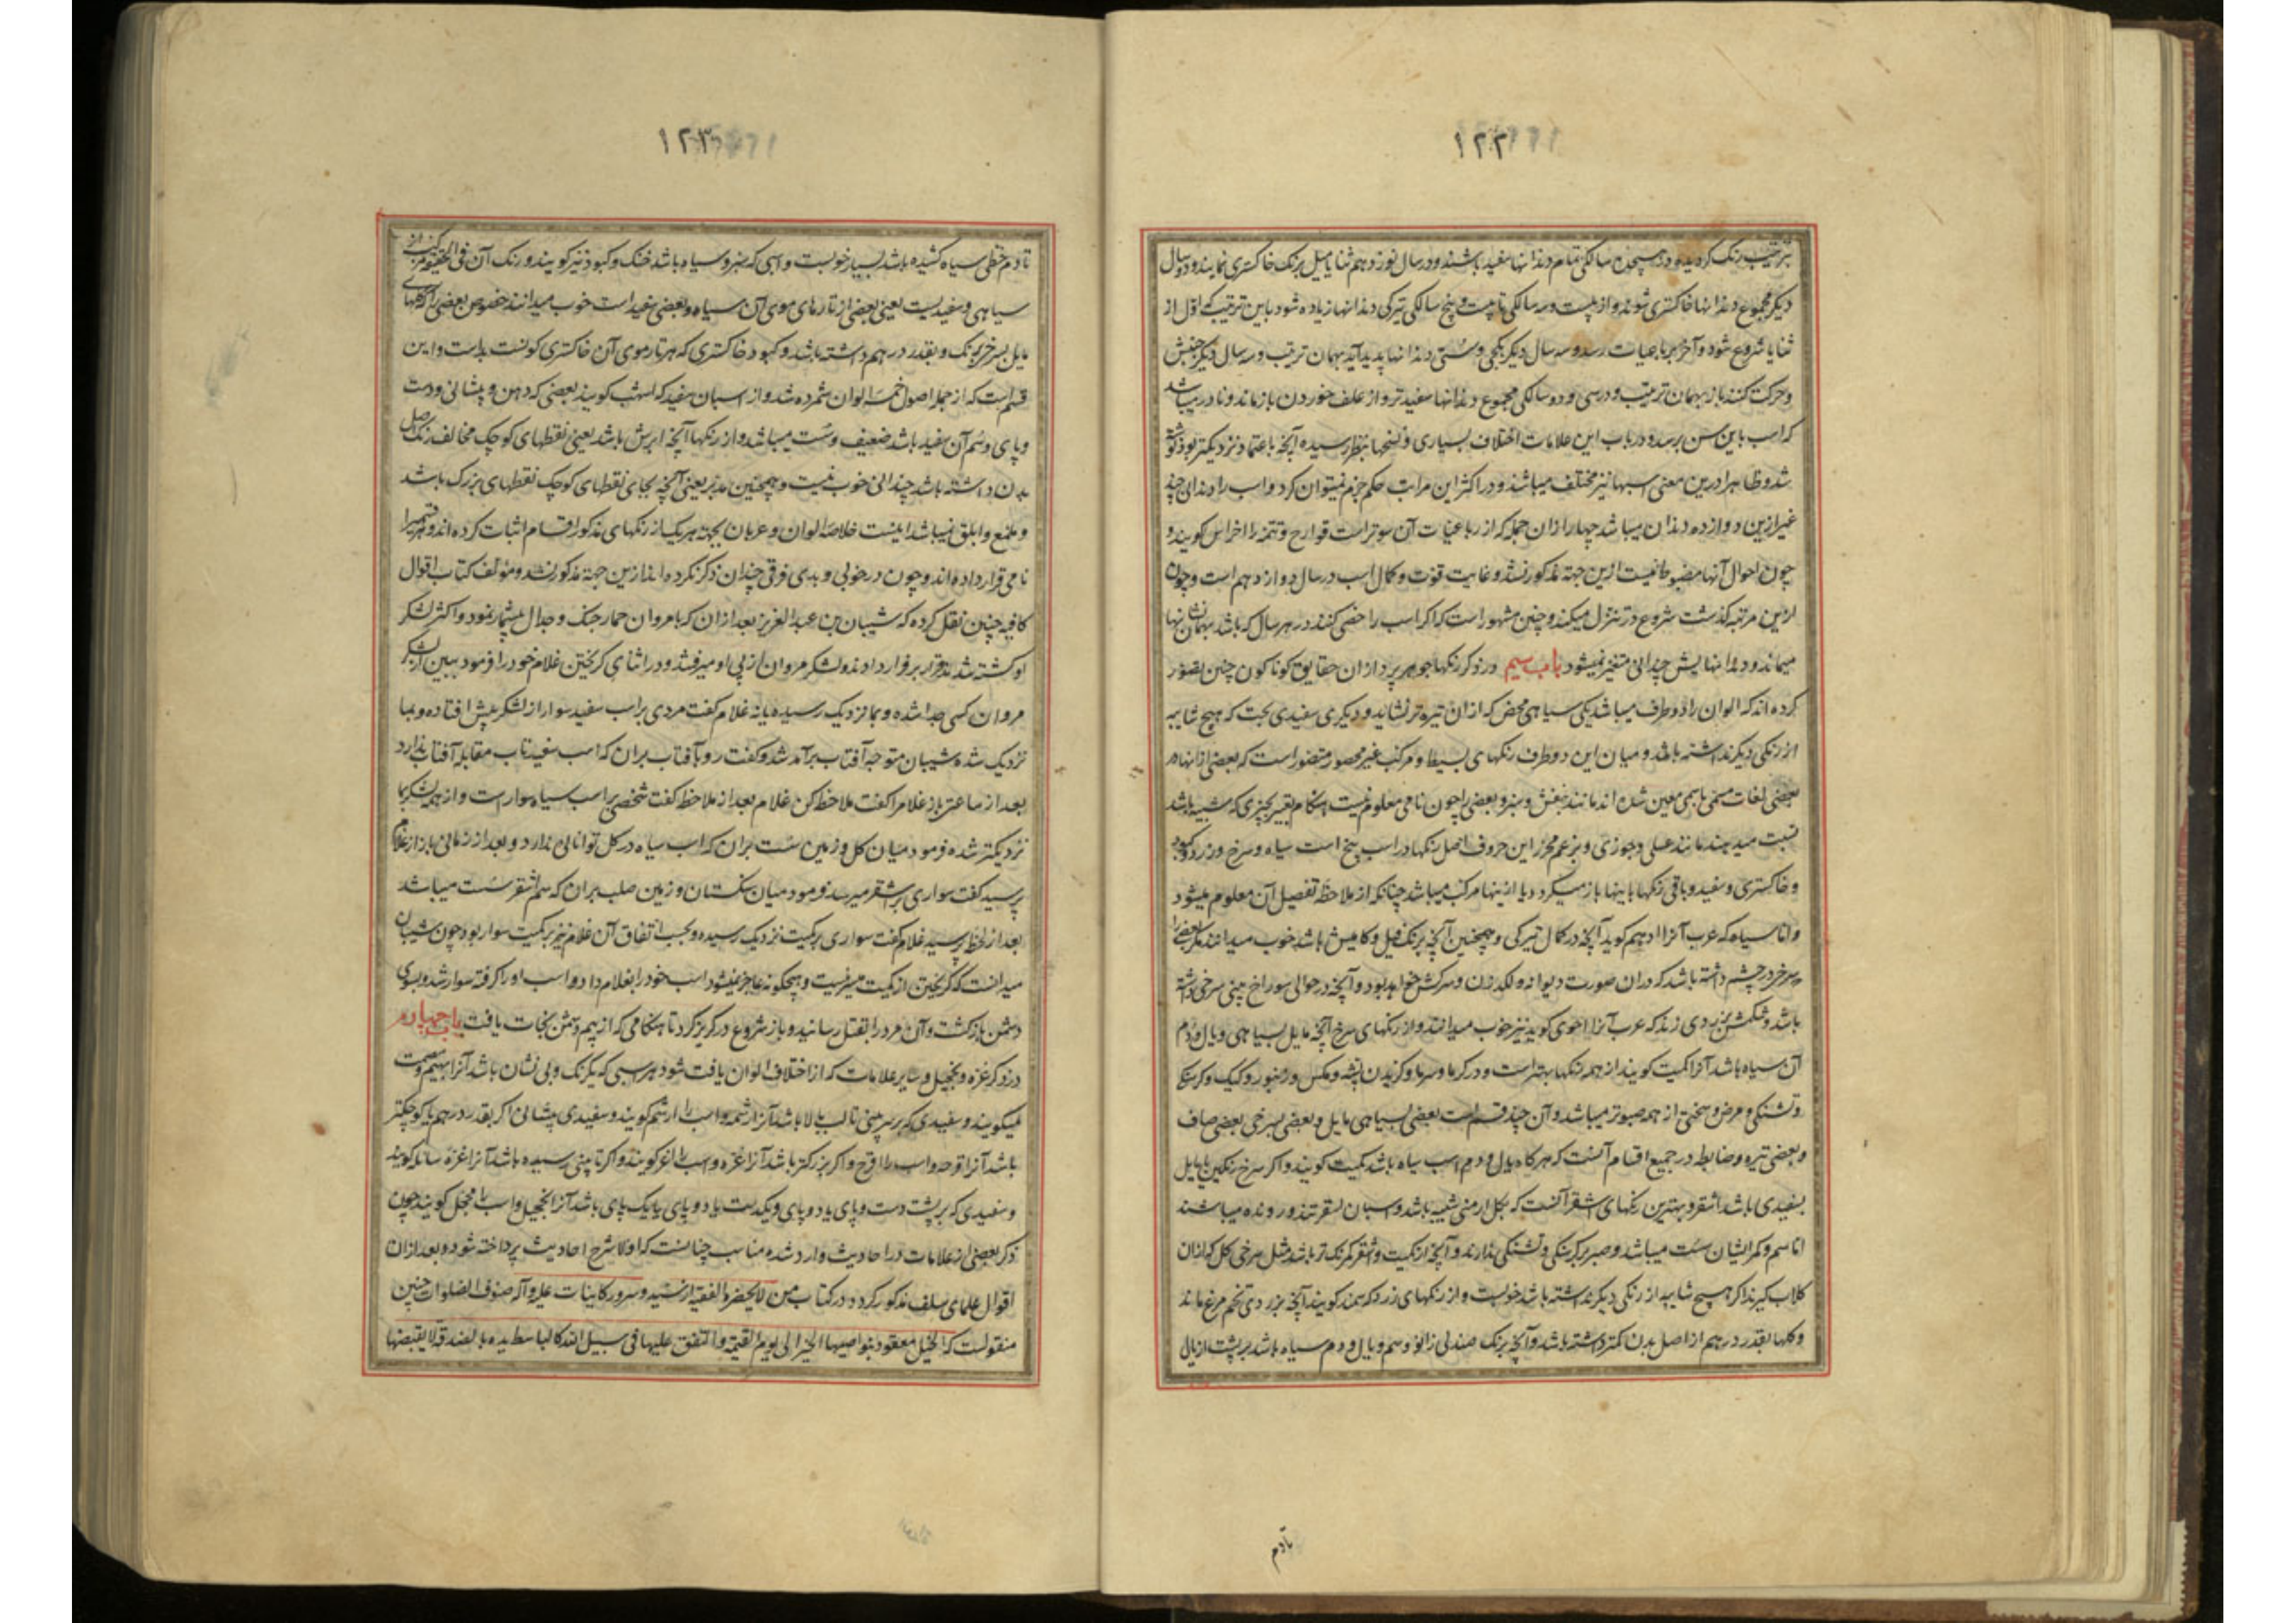 ۱۲۲
بترتیب رنک کردیده و در هیجده سالکی تمام دندانها سفید باشند و در سال نوزدهم ثنایا میل برنک خاکستری نمایند و دو سال
دیکر مجموع دندانها خاکستری شوند و از بیست و سه سالکی تا بیست و پنج سالکی تیرکی دندانها زیاده شود باین ترتیب که اول از
ثنایا شروع شود و آخر برباعیات رسد و سه سال دیکر کجی و سستی دندانها پدید آید بهمان ترتیب و سه سال دیکر جنبش
و حرکت کنند باز بهمان ترتیب و در سی و دو سالکی مجموع دندانها سفیدتر و از علف خوردن بازماند و نادر میباشد
که اسب باین سن برسد و در باب این علامات اختلاف بسیاری در نسخها بنظر رسیده آنچه باعتماد نزدیکتر بود نوشته
شد و ظاهرا درین معنی اسبها نیز مختلف میباشند و در اکثر این مراتب حکم جزم نمیتوان کرد و اسب را دندانی چند
غیر ازین دوازده دندان میباشد چهار ازان جمله که از رباعیات آن سوتر است قوارح و تتمه را اضراس کویند و
چون احوال آنها مضبوط نیست ازین جهة مذکور نشد و غایت قوت و کمال اسب در سال دوازدهم است و چون
ازین مرتبه کذشت شروع در تنزل میکند و چنین مشهور است که اکر اسب را خصی کنند در هر سال که باشد بهمان نشانها
میماند و دندانهایش چندانی متغیر نمیشود باب سیم در ذکر رنکها جوهر پردازان حقایق کوناکون چنین تصور
کرده‌اند که الوان را دو طرف میباشد یکی سیاهی محض که ازان تیره‌تر نشاید و دیکری سفیدی بحت که هیچ شایبه
از رنکی دیکر نداشته باشد و میان این دو طرف رنکهای بسیط و مرکب غیر محصور متصور است که بعضی از انها در
بعضی لغات مسمی باسمی معین شده‌اند مانند بنفش و سبز و بعضی را چون نامی معلوم نیست هنکام تعبیر بچیزی که شبیه باشد
نسبت میدهند مانند عسلی و جوزی و بزعم محرر این حروف اصل رنکها در اسب پنج است سیاه و سرخ و زرد و کبود
و خاکستری و سفید و باقی رنکها باینها باز میکردد یا از اینها مرکب میباشد چنانکه از ملاحظه تفصیل آن معلوم میشود
و اما سیاه که عرب آنرا ادهم کوید آنچه در کمال تیرکی و همچنین آنچه برنک فیل و کامیش باشد خوب میدانند مکر بعضی را
که سرخی در چشم داشته باشد که دران صورت دیوانه و لکدزن و سرکش خواهد بود و آنچه در حوالی سوراخ بینی سرخی داشته
باشد و شکمش بزردی زند که عرب آنرا احوی کوید نیز خوب میدانند و از رنکهای سرخ آنچه مایل بسیاهی و یال و دم
آن سیاه باشد آنرا کمیت کویند از همه رنکها بهتر است و در کرما و سرما و کزیدن پشه و مکس و زنبور و کیک و کرسنکی
و تشنکی و مرض و سختی از همه صبورتر میباشد و آن چند قسم است بعضی بسیاهی مایل و بعضی بسرخی بعضی صاف
و بعضی تیره و ضابطه در جمیع اقسام آنست که هرکاه یال و دم اسب سیاه باشد کمیت کویند و اکر سرخ رنکین یا مایل
بسفیدی باشد اشقر و بهترین رنکهای اشقر آنست که بکل ارمنی شبیه باشد و اسبان اشقر تند و رونده میباشند
اما سم و کمر ایشان سست میباشد و صبر بر کرسنکی و تشنکی ندارند و آنچه از کمیت و اشقر کمرنک‌تر باشد مثل سرخی کل که ازان
کلاب کیرند اکر هیچ شایبه از رنکی دیکر نداشته باشد خوبست و از رنکهای زرد که سمند کویند آنچه بزردی تخم مرغ ماند
و کلها بقدر درهم از اصل بدن کمتر داشته باشد و آنچه برنک صندلی زانو و سم و یال و دم سیاه باشد بر پشت از یال
تادم
۱۲۳
تا دم خطی سیاه کشیده باشد بسیار خوبست و اسبی که سبز و سیاه باشد خنک و کبود نیز کویند و رنک آن فی الحقیقه مرکب از
سیاهی و سفیدیست یعنی بعضی از تارهای موی آن سیاه و بعضی سفید است خوب میدانند خصوص بعضی را که کلهای
مایل بسرخی رنک و بقدر درهم داشته باشد و کبود خاکستری که هر تار موی آن خاکستری کونست بد است و این
قسم است که از جمله اصول خمسه الوان شمرده شد و از اسبان سفید که اشهب کویند بعضی که دهن و پیشانی و دست
و پای و سم آن سفید باشد ضعیف و سست میباشد و از رنکها آنچه ابرش باشد یعنی نقطهای کوچک مخالف رنک اصل
بدن داشته باشد چندانی خوب نیست و همچنین مدنر یعنی آنچه بجای نقطهای کوچک نقطهای بزرک باشد
و ملمع و ابلق نمیباشد اینست خلاصه الوان و عربان بجهة هر یک از رنکهای مذکور اقسام اثبات کرده‌اند و هر قسمیرا
نامی قرار داده‌اند و چون در خوبی و بدی فرقی چندان ذکر نکرده‌اند ازین جهة مذکور نشد و مؤلف کتاب اقوال
کافیه چنین نقل کرده که شیبان بن عبد العزیز بعد ازان که با مروان حمار جنک و جدال بیشمار نمود و اکثر لشکر
او کشته شد قرار بر فرار دادند و لشکر مروان از پی او میرفتند و در اثنای کریختن غلام خود را فرمود ببین از لشکر
مروان کسی جدا شده و بما نزدیک رسیده یا نه غلام کفت مردی بر اسب سفید سوار از لشکر پیش افتاده و بما
نزدیک شده شیبان متوجه آفتاب برآمد شد و کفت رو بآفتاب بران که اسب سفید تاب مقابله آفتاب ندارد
بعد از ساعتی باز غلام را کفت ملاحظه کن غلام بعد از ملاحظه کفت شخصی بر اسب سیاه سوار است و از همه لشکر بما
نزدیکتر شده فرمود میان کل و زمین سست بران که اسب سیاه در کل توانایی ندارد و بعد از زمانی باز از غلام
پرسید کفت سواری بر اشقر میرسد فرمود میان سنکستان و زمین صلب بران که سم اشقر سست میباشد
بعد از لحظه پرسید غلام کفت سواری بر کمیت نزدیک رسیده و بحسب اتفاق آن غلام نیز بر کمیت سوار بود چون شیبان
میدانست که کریختن از کمیت میسر نیست و بهیچکونه عاجز نمیشود اسب خود را بغلام داد و اسب او را کرفته سوار شد و بسوی
دشمن بازکشت و آن مرد را بقتل رسانید و باز شروع در کریز کرد تا هنکامی که از بیم دشمن نجات یافت باب چهارم
در ذکر غره و تحجیل و سایر علامات که از اختلاف الوان یافت شود هر اسبی که یکرنک و بی نشان باشد آنرا بهیم و مصمت
میکویند و سفیدی که بر سر بینی تا لب بالا باشد آنرا رثمه و اسب را ارثم کویند و سفیدی پیشانی اکر بقدر درهم یا کوچکتر
باشد آنرا قرحه و اسب را اقرح و اکر بزرکتر باشد آنرا غره و اسب را اغر کویند و اکر تا بینی رسیده باشد آنرا غره سائله کویند
و سفیدی که بر پشت دست و پای یا دو پای و یکدست یا دو پای یا یک پای باشد آنرا تحجیل و اسب را محجل کویند چون
ذکر بعضی از علامات در احادیث وارد شده مناسب چنانست که اولا شرح احادیث پرداخته شود و بعد ازان
اقوال علمای سلف مذکور کردد در کتاب من لایحضره الفقیه از سید و سرور کاینات علیه و آله صنوف الصلوات چنین
منقولست که الخیل معقود بنواصیها الخیر الی یوم القیمة و المنفق علیها فی سبیل الله کالباسط یده بالصدقة لا یقبضها